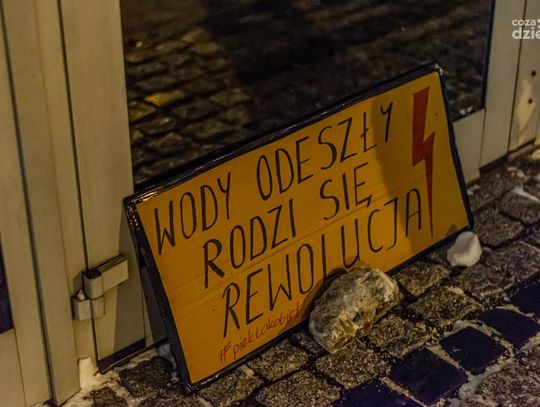 coza
dzie
WODY ODESZŁY
RODZI SIĘ
REWOLUCJA
#piekłokobiet